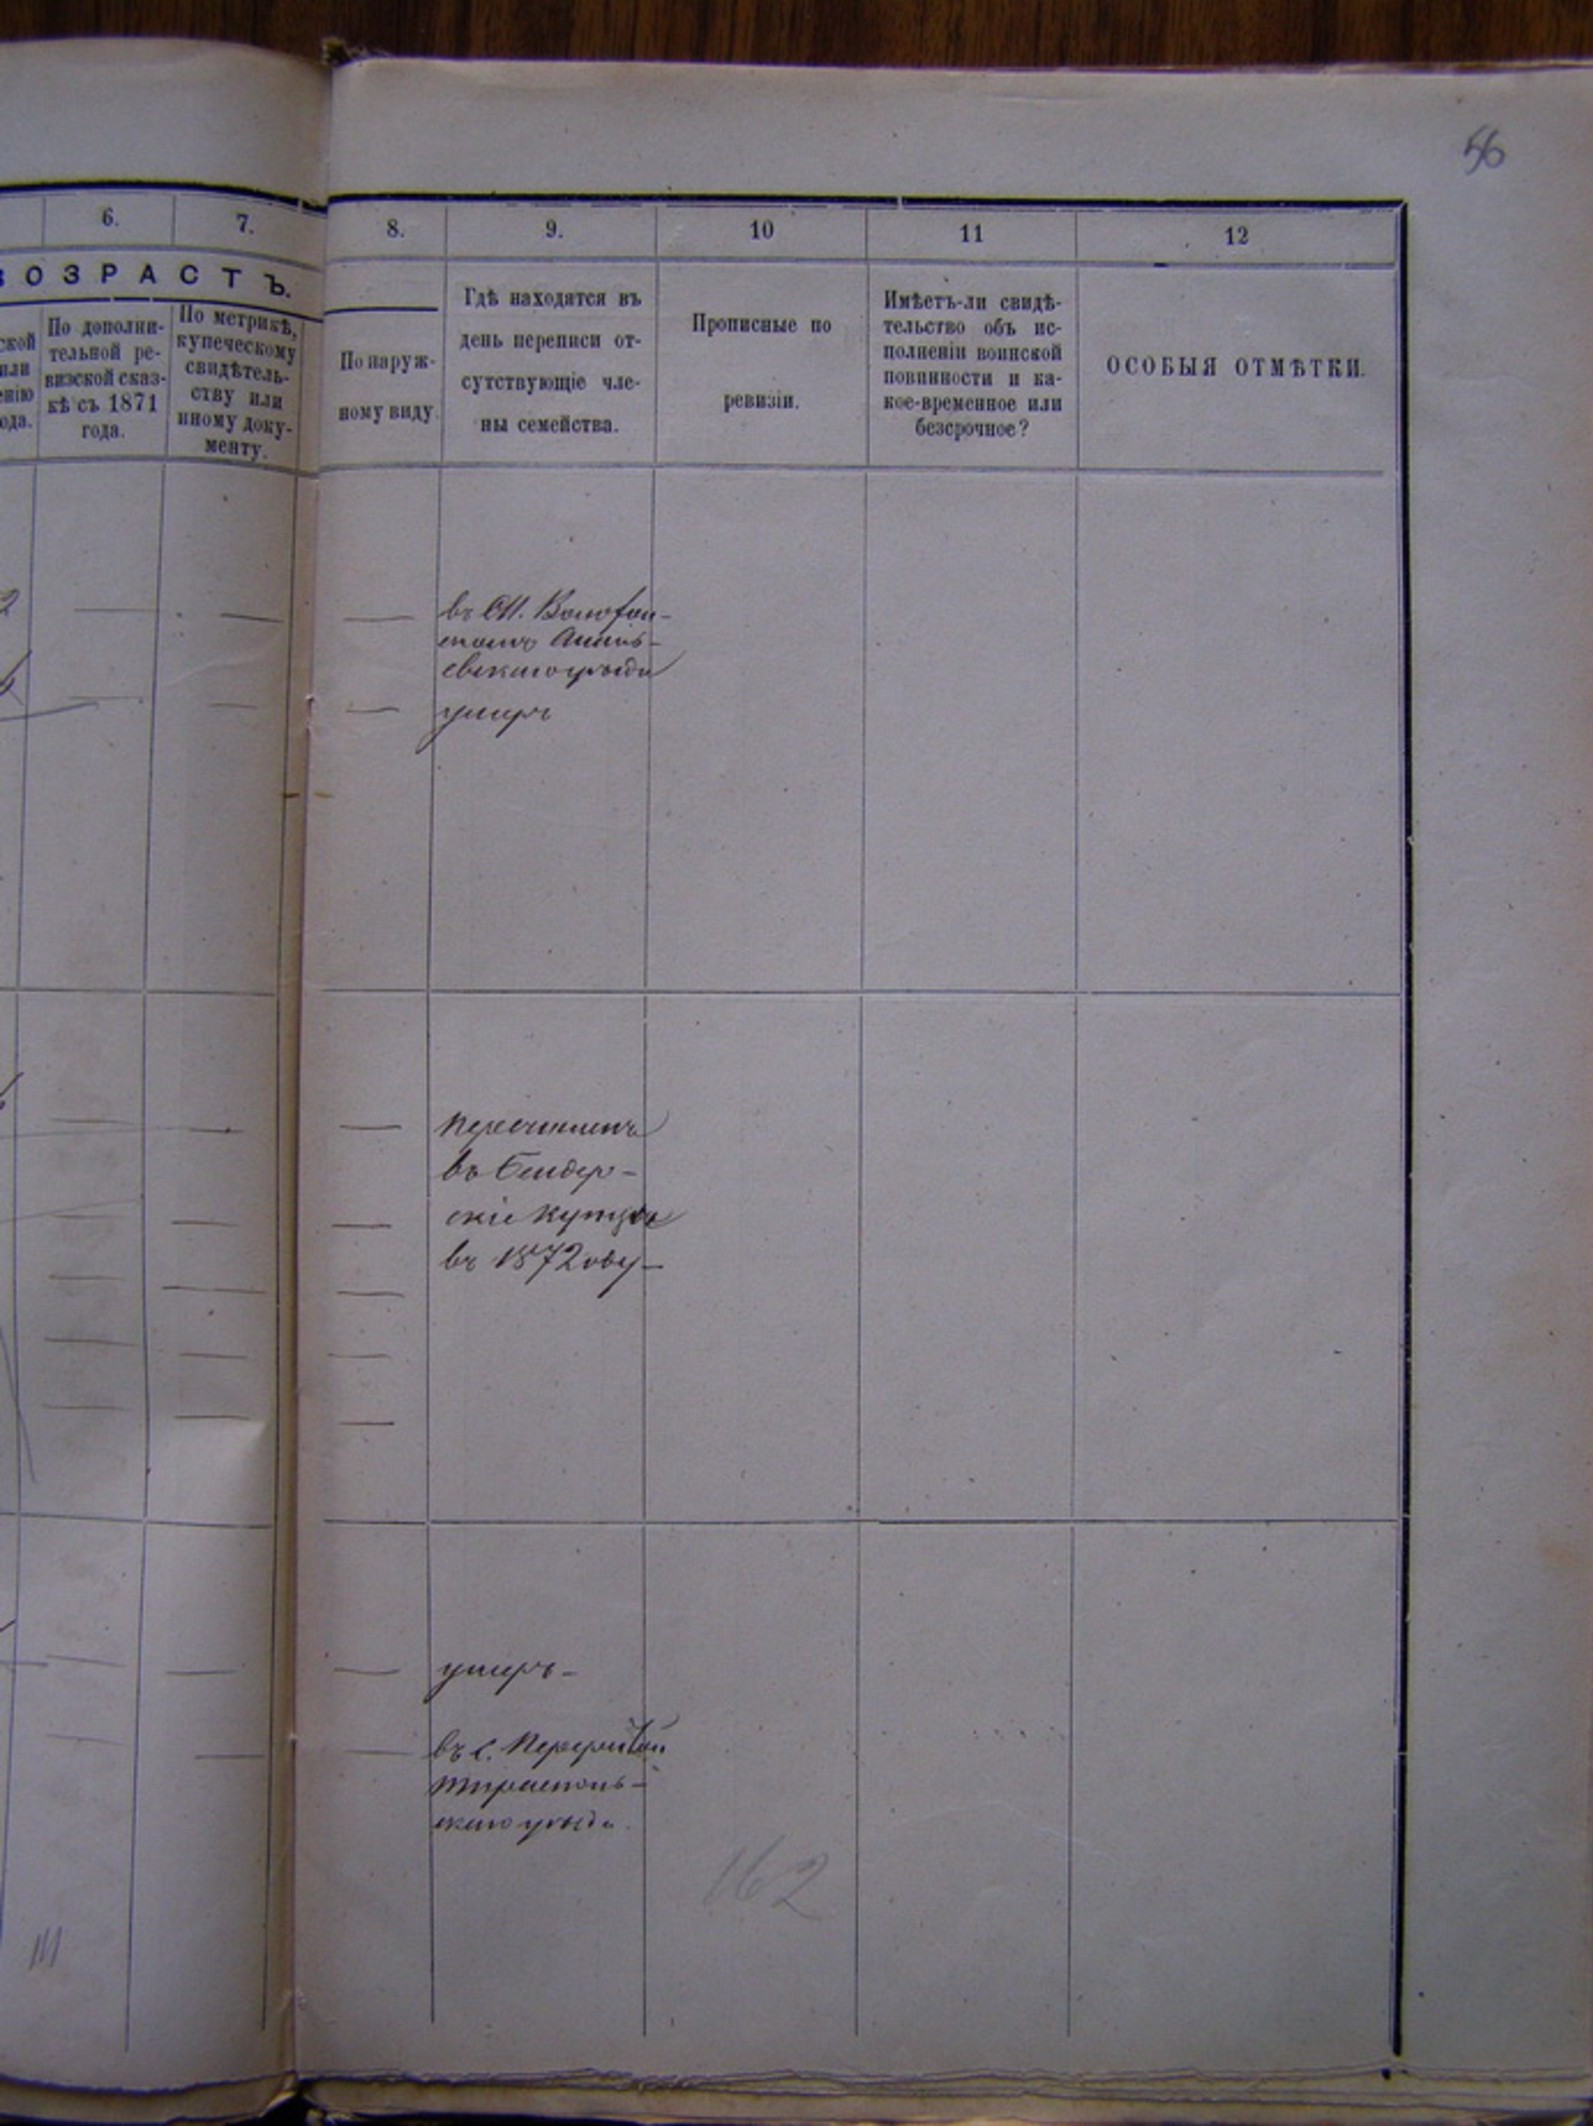 56
6.
7.
8.
9.
10
11
12
ВОЗРАСТЪ.
По дополни-
тельной ре-
визской сказ-
кѣ съ 1871
года.
По метрикѣ,
купеческому
свидѣтель-
ству или
иному доку-
менту.
По наруж-
ному виду.
Гдѣ находятся въ
день переписи от-
сутствующіе чле-
ны семейства.
Прописные по
ревизіи.
Имѣетъ-ли свидѣ-
тельство объ ис-
полненіи воинской
повинности и ка-
кое-временное или
безсрочное?
ОСОБЫЯ ОТМѢТКИ.
2
въ
уѣзда
умеръ
перечисленъ
въ Бендер-
скіе купцы
въ 1872 году
умеръ
въ с.
Тирасполь-
скаго уѣзда.
162